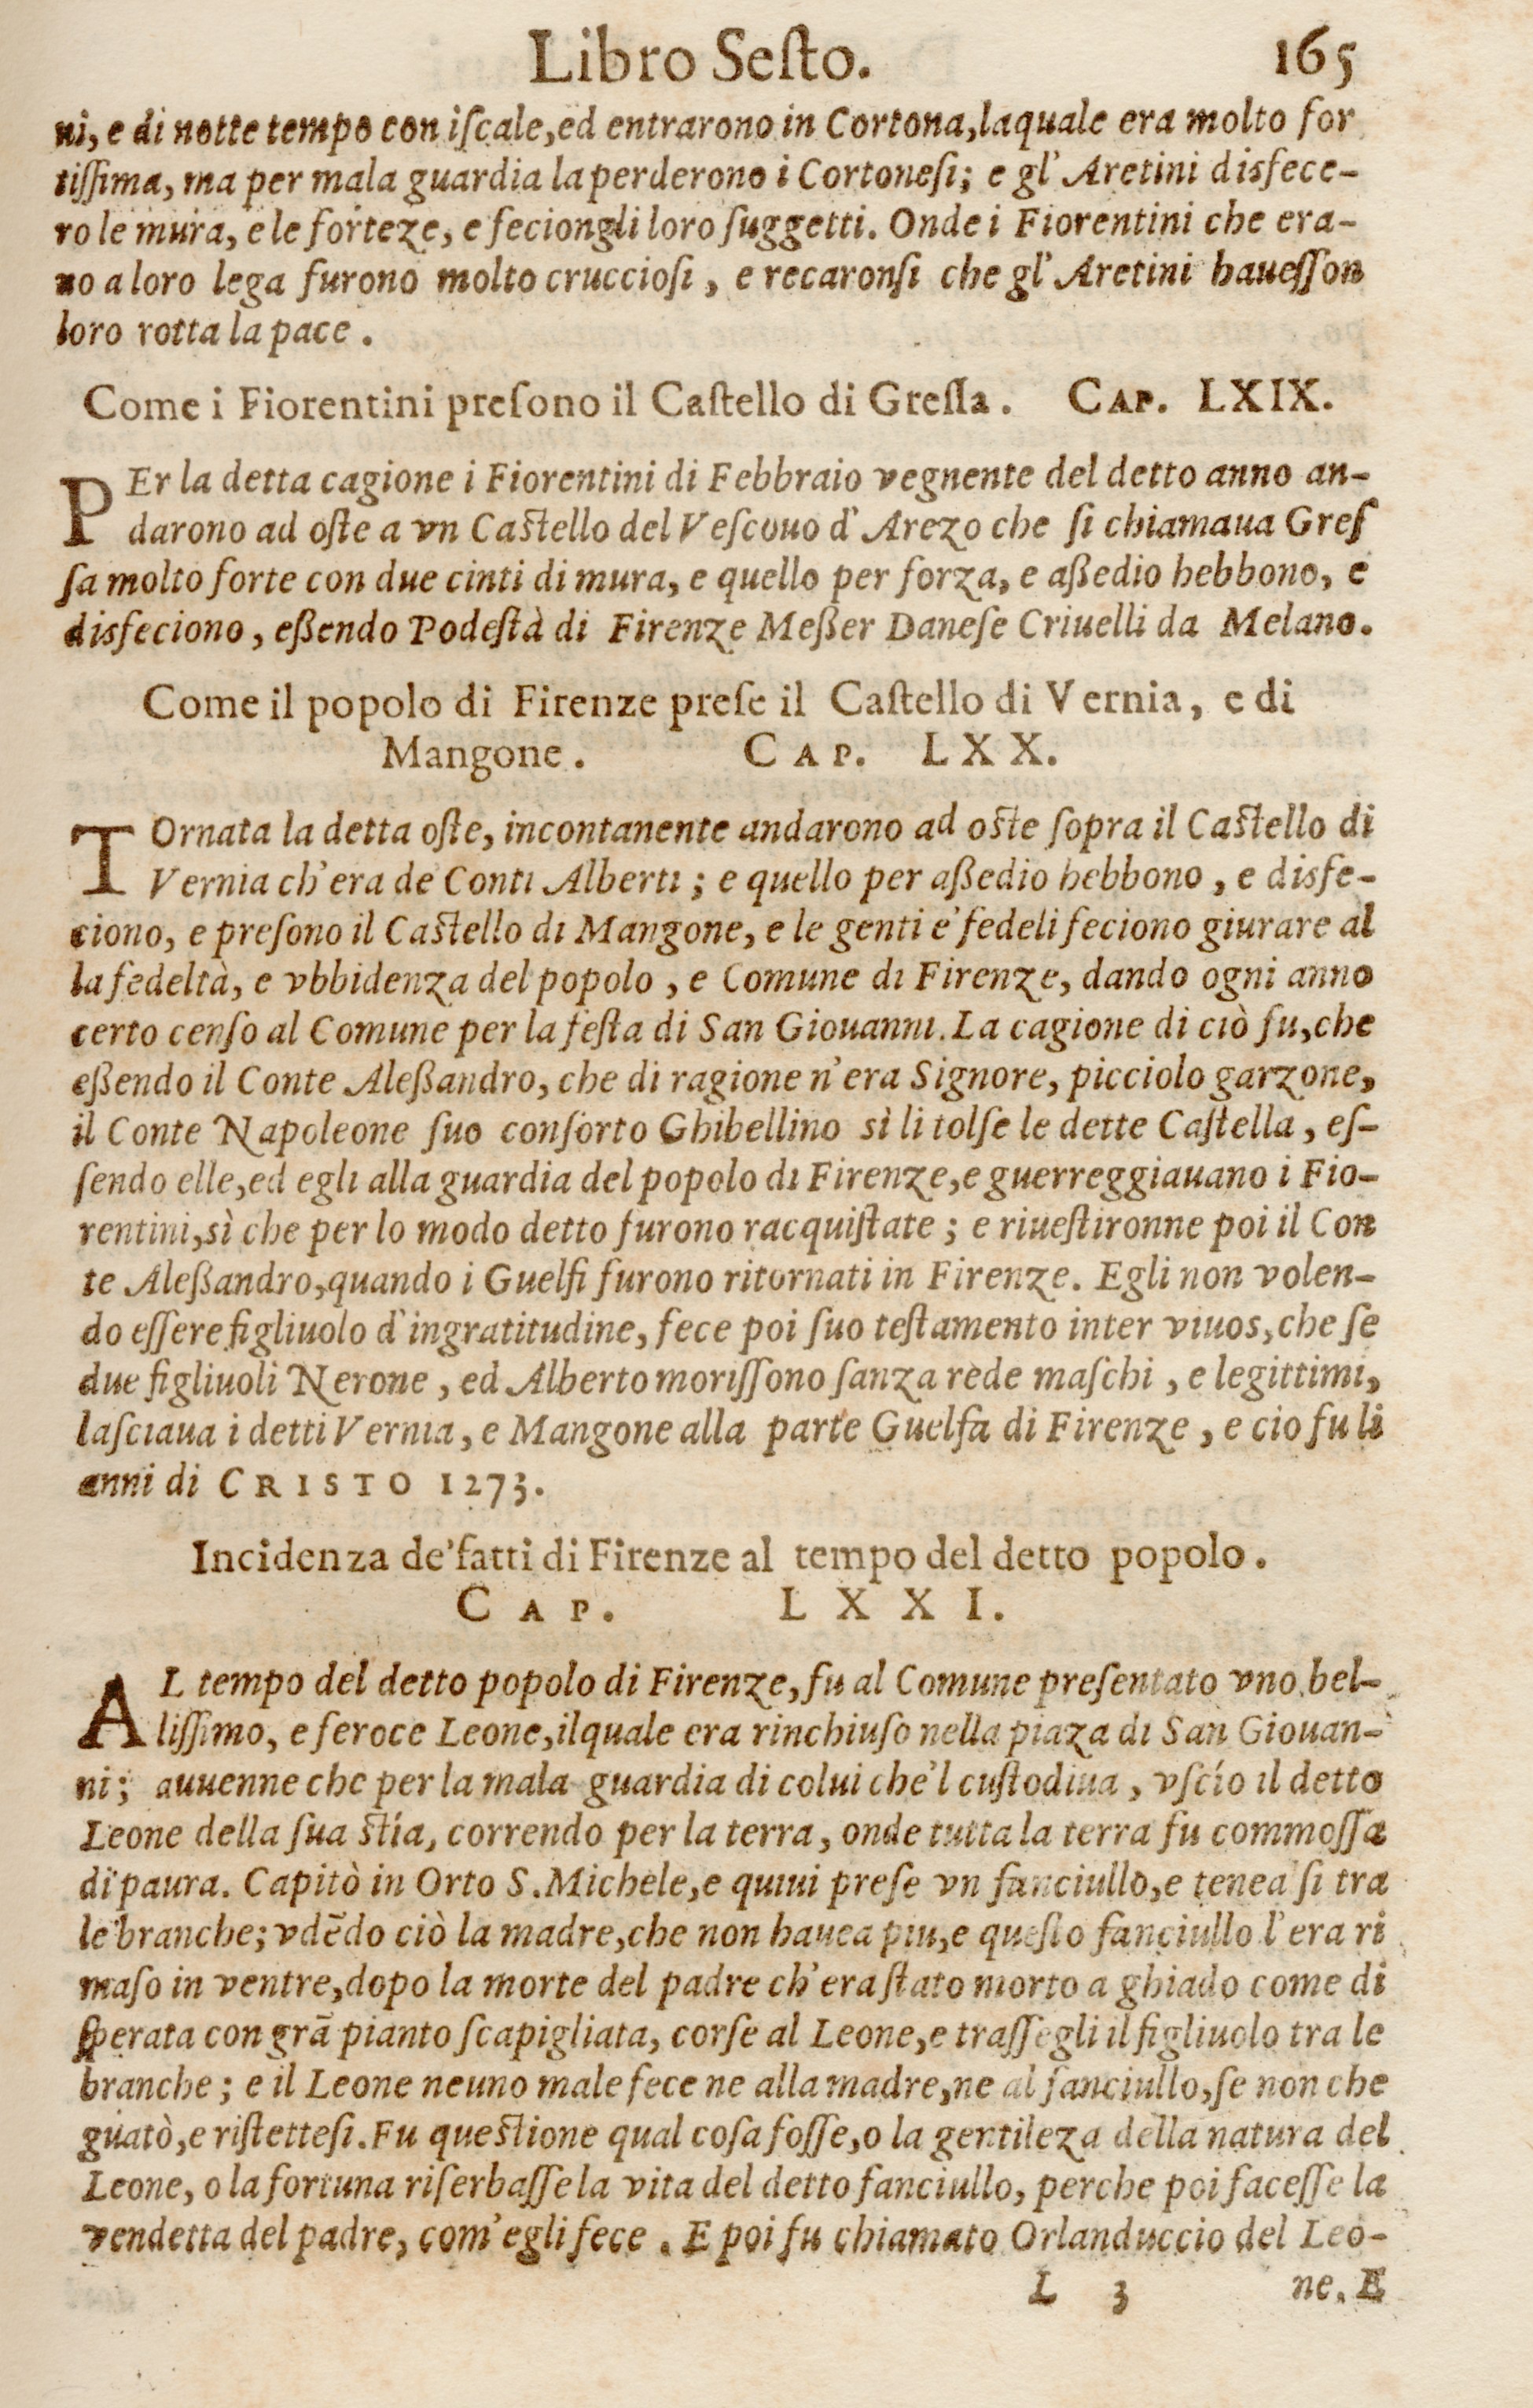 Libro Seſto. 165
ni, e di notte tempo con iſcale, ed entrarono in Cortona, laquale era molto for
tiſſima, ma per mala guardia la perderono i Cortoneſi; e gl' Aretini disfece-
ro le mura, e le forteze, e feciongli loro ſuggetti. Onde i Fiorentini che era-
no a loro lega furono molto crucciosi, e recaronſi che gl' Aretini haueſſon
loro rotta la pace.
Come i Fiorentini preſono il Caſtello di Greſſa. CAP. LXIX.
PEr la detta cagione i Fiorentini di Febbraio vegnente del detto anno an-
darono ad oſte a vn Caſtello del Veſcouo d' Arezo che ſi chiamaua Greſ
ſa molto forte con due cinti di mura, e quello per forza, e aßedio hebbono, e
disfeciono, eßendo Podeſtà di Firenze Meßer Daneſe Criuelli da Melano.
Come il popolo di Firenze preſe il Caſtello di Vernia, e di
Mangone. CAP. LXX.
TOrnata la detta oſte, incontanente andarono ad oſte ſopra il Caſtello di
Vernia ch'era de Conti Alberti; e quello per aßedio hebbono, e disfe-
ciono, e preſono il Caſtello di Mangone, e le genti e' fedeli feciono giurare al
la fedeltà, e vbbidenza del popolo, e Comune di Firenze, dando ogni anno
certo cenſo al Comune per la feſta di San Giouanni. La cagione di ciò fu, che
eßendo il Conte Aleßandro, che di ragione n'era Signore, picciolo garzone,
il Conte Napoleone ſuo conſorto Ghibellino sì li tolſe le dette Caſtella, eſ-
ſendo elle, ed egli alla guardia del popolo di Firenze, e guerreggiauano i Fio-
rentini, sì che per lo modo detto furono racquiſtate; e riueſtironne poi il Con
te Aleßandro, quando i Guelfi furono ritornati in Firenze. Egli non volen-
do eſſere figliuolo d'ingratitudine, fece poi ſuo teſtamento inter viuos, che ſe
due figliuoli Nerone, ed Alberto moriſſono ſanza rede maſchi, e legittimi,
laſciaua i detti Vernia, e Mangone alla parte Guelfa di Firenze, e cio fu li
anni di CRISTO 1273.
Incidenza de'fatti di Firenze al tempo del detto popolo.
CAP. LXXI.
AL tempo del detto popolo di Firenze, fu al Comune preſentato vno bel-
liſſimo, e feroce Leone, ilquale era rinchiuſo nella piaza di San Giouan-
ni; auuenne che per la mala guardia di colui che'l cuſtodiua, vſcío il detto
Leone della ſua ſtía, correndo per la terra, onde tutta la terra fu commoſſa
di paura. Capitò in Orto S. Michele, e quiui preſe vn fanciullo, e tenea ſi tra
le branche; vdēdo ciò la madre, che non hauea piu, e queſto fanciullo l'era ri
maſo in ventre, dopo la morte del padre ch'era ſtato morto a ghiado come di
ſperata con grā pianto ſcapigliata, corſe al Leone, e traſſegli il figliuolo tra le
branche; e il Leone neuno male fece ne alla madre, ne al fanciullo, ſe non che
guatò, e riſtetteſi. Fu queſtione qual coſa foſſe, o la gentileza della natura del
Leone, o la fortuna riſerbaſſe la vita del detto fanciullo, perche poi faceſſe la
vendetta del padre, com'egli fece. E poi fu chiamato Orlanduccio del Leo-
L 3 ne. E